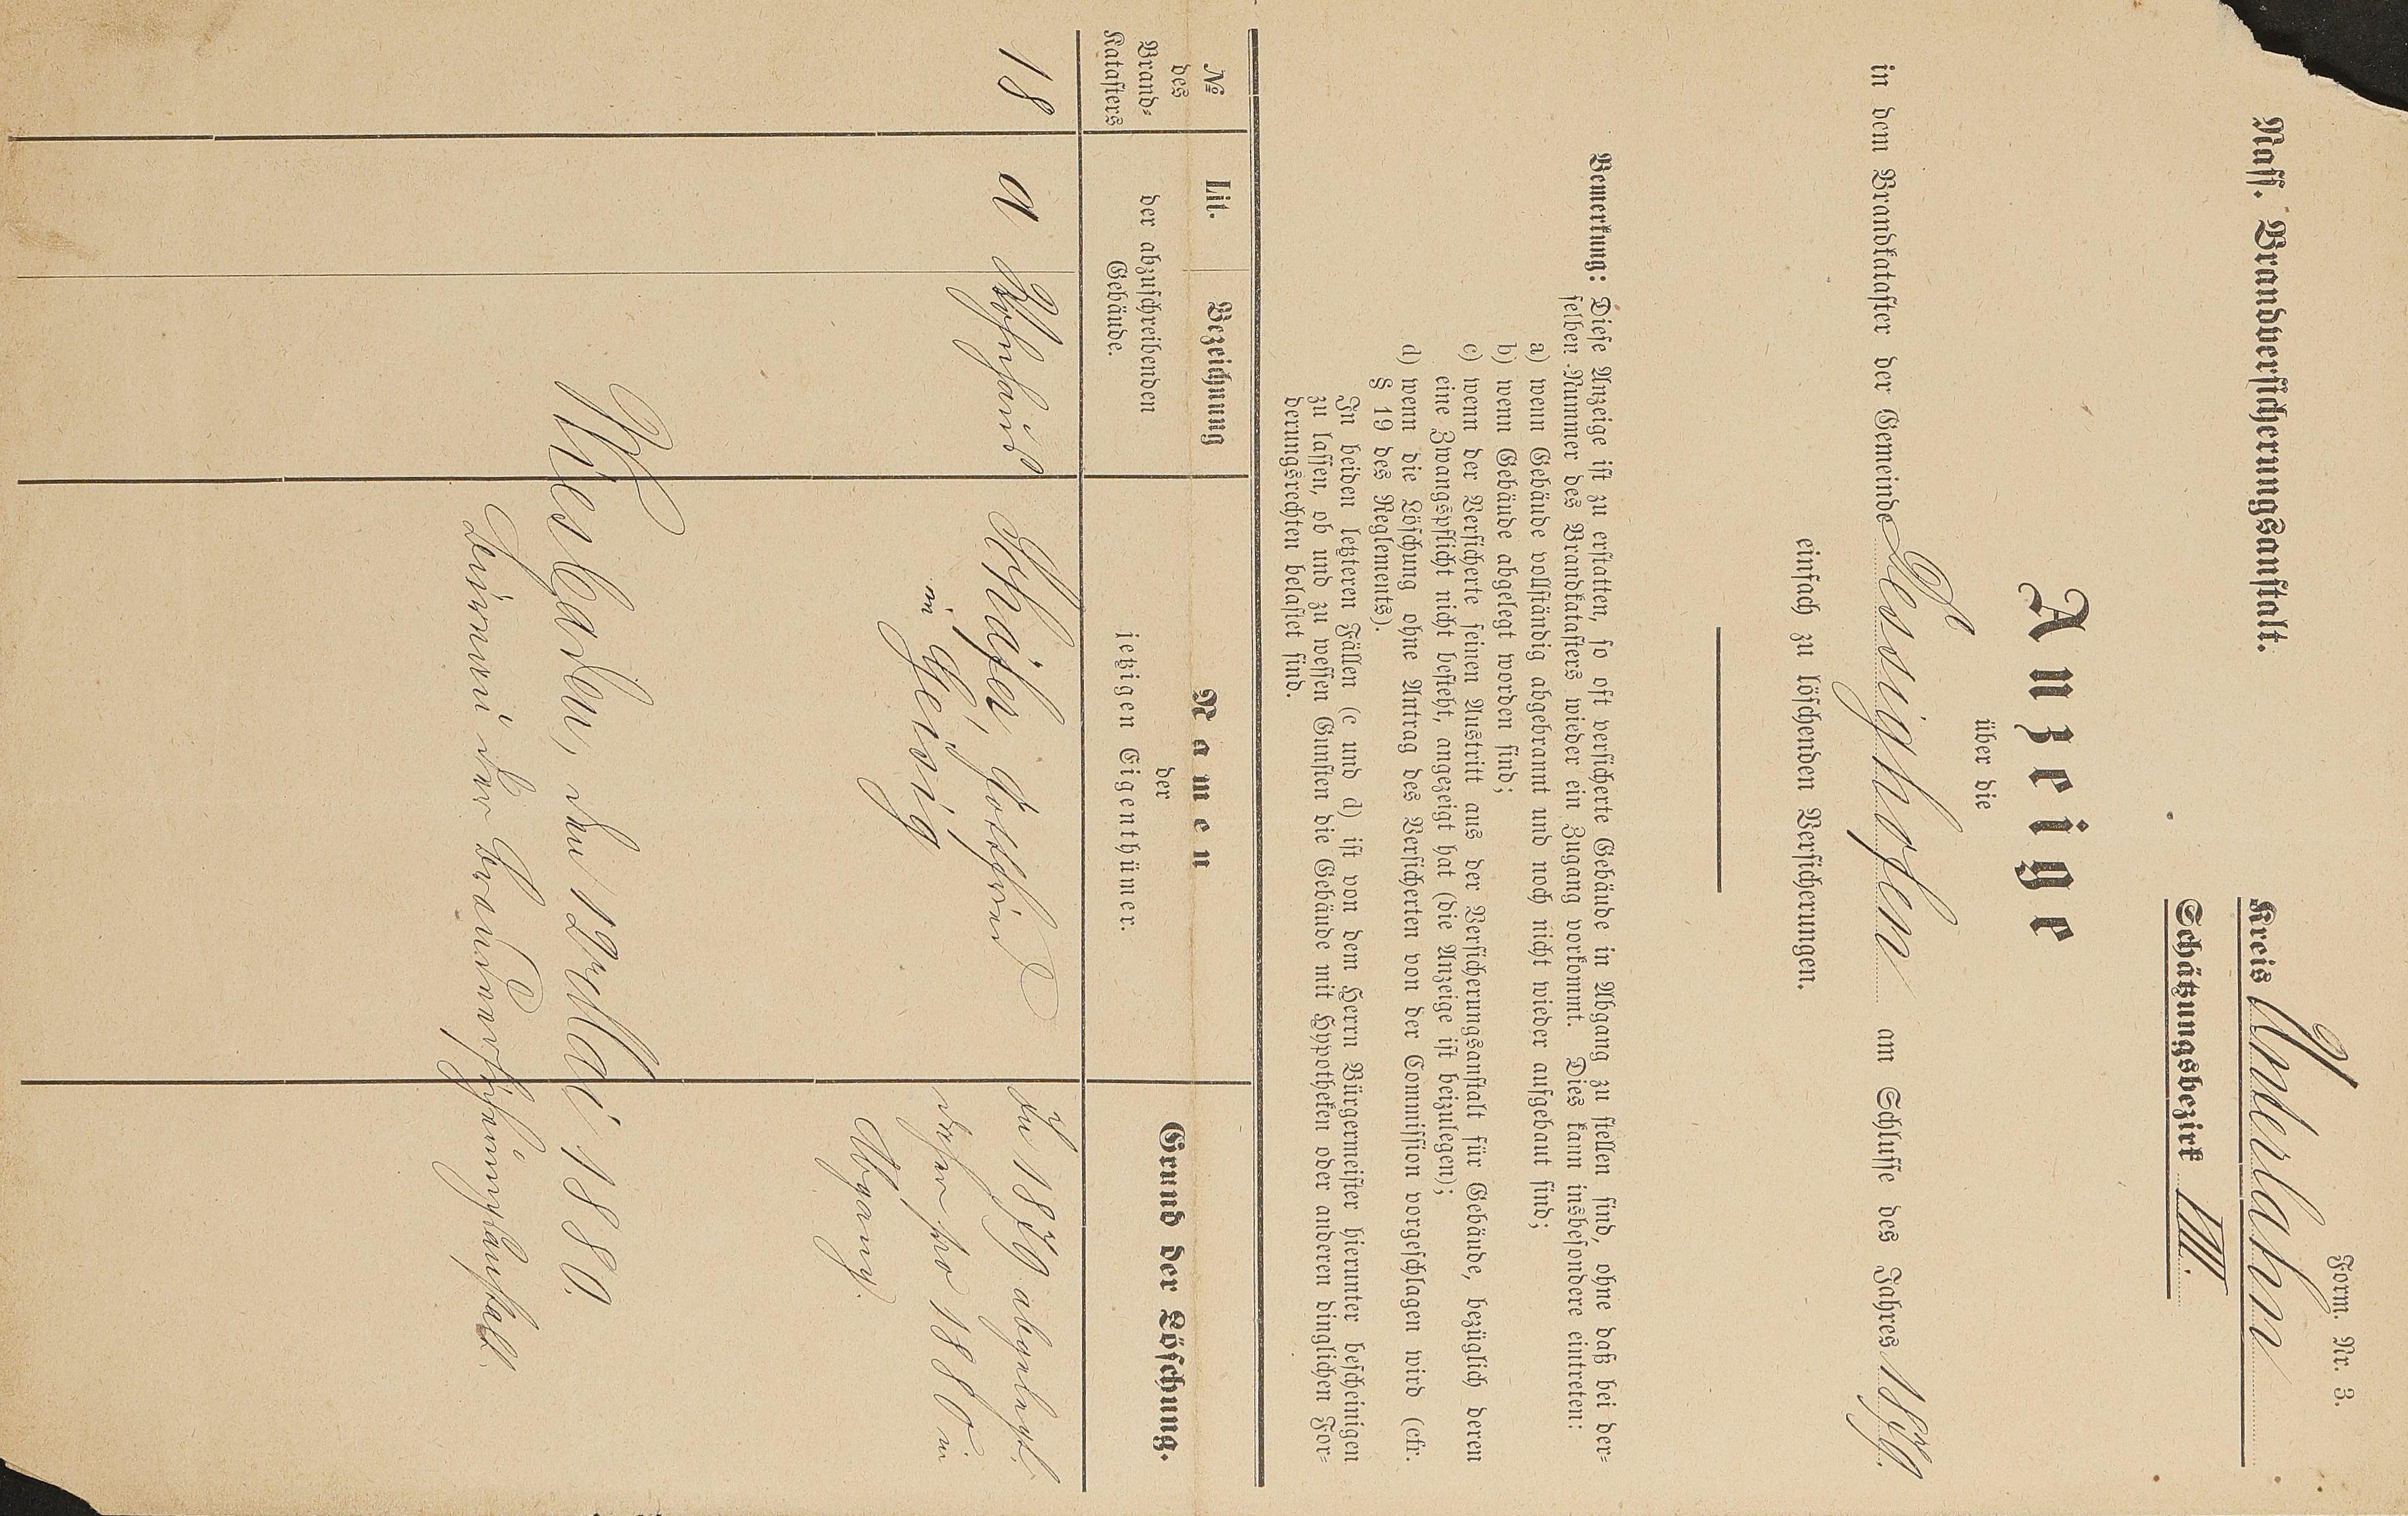 Form. Nr. 3.
Nass. Brandversicherungsanstalt.
Kreis Unterlahn
Schätzungsbezirk VIII.
Anzeige
über die
in dem Brandkataster der Gemeinde Dessighofen am Schlusse des Jahres 1879.
einfach zu löschenden Versicherungen.
Bemerkung: Diese Anzeige ist zu erstatten, so oft versicherte Gebäude in Abgang zu stellen sind, ohne daß bei der-
selben Nummer des Brandkatasters wieder ein Zugang vorkommt. Dies kann insbesondere eintreten:
a) wenn Gebäude vollständig abgebrannt und noch nicht wieder aufgebaut sind;
b) wenn Gebäude abgelegt worden sind;
c) wenn der Versicherte seinen Austritt aus der Versicherungsanstalt für Gebäude, bezüglich deren
eine Zwangspflicht nicht besteht, angezeigt hat (die Anzeige ist beizulegen);
d) wenn die Löschung ohne Antrag des Versicherten von der Commission vorgeschlagen wird (cfr.
§ 19 des Reglements).
In beiden letzteren Fällen (c und d) ist von dem Herrn Bürgermeister hierunter bescheinigen
zu lassen, ob und zu wessen Gunsten die Gebäude mit Hypotheken oder anderen dinglichen For-
derungsrechten belastet sind.
№ des Brand-Katasters
Lit. Bezeichnung
der abzuschreibenden
Gebäude.
Namen
der
jetzigen Eigenthümer.
Grund der Löschung.
18 a Wohnhaus Schäfer, Gottfried In 1879 abgelegt
in Geisig daher pro 1880 in
Abgang.
Wiesbaden, den 12ten Mai 1880.
Bureau der Brandversicherungsanstalt.